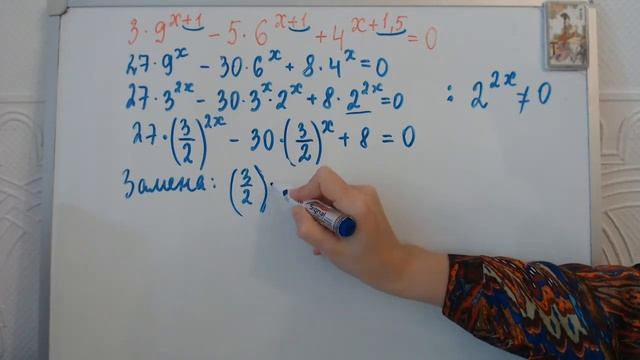 3·9^{x+1} − 5·6^{x+1} + 4^{x+1,5} = 0
27·9^x − 30·6^x + 8·4^x = 0
27·3^{2x} − 30·3^x·2^x + 8·2^{2x} = 0 : 2^{2x} ≠ 0
27·(3/2)^{2x} − 30·(3/2)^x + 8 = 0
Замена: (3/2)
Signal